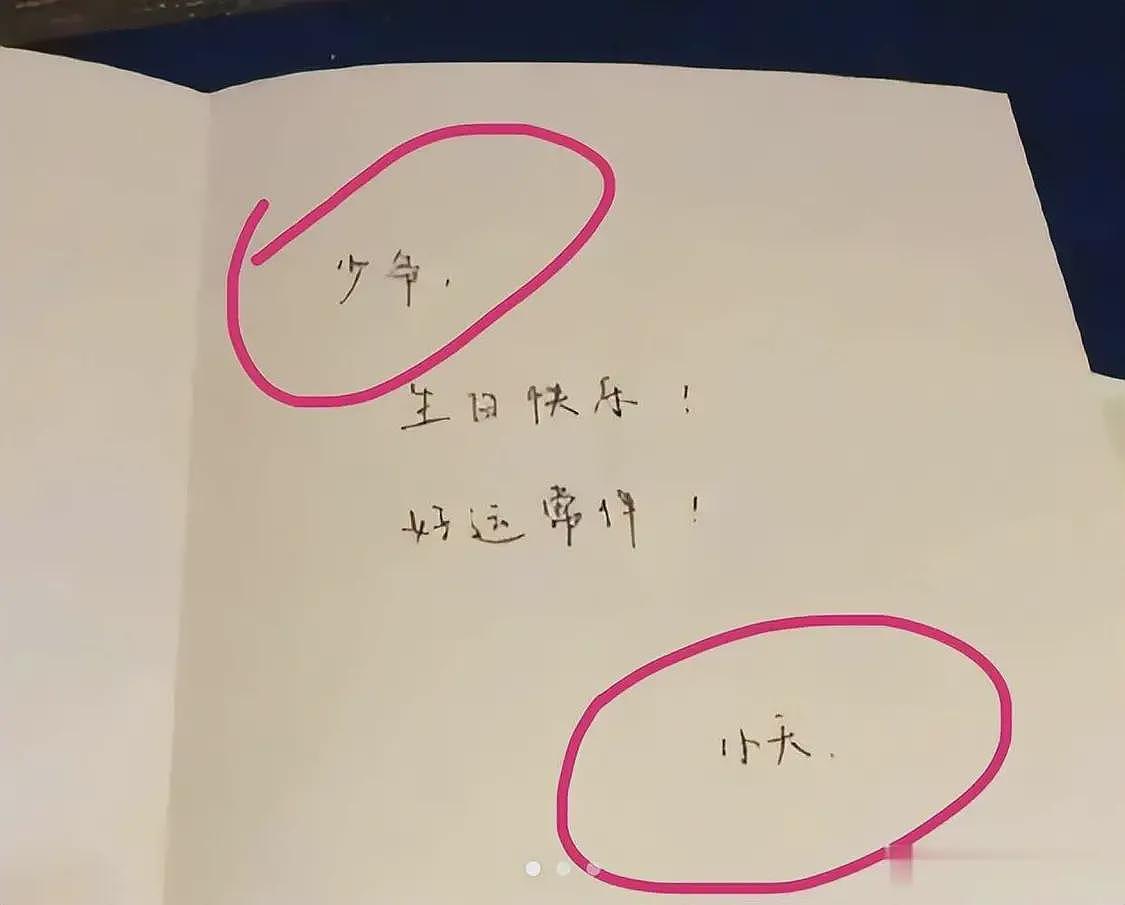 少爷,
生日快乐!
好运常伴!
小天.